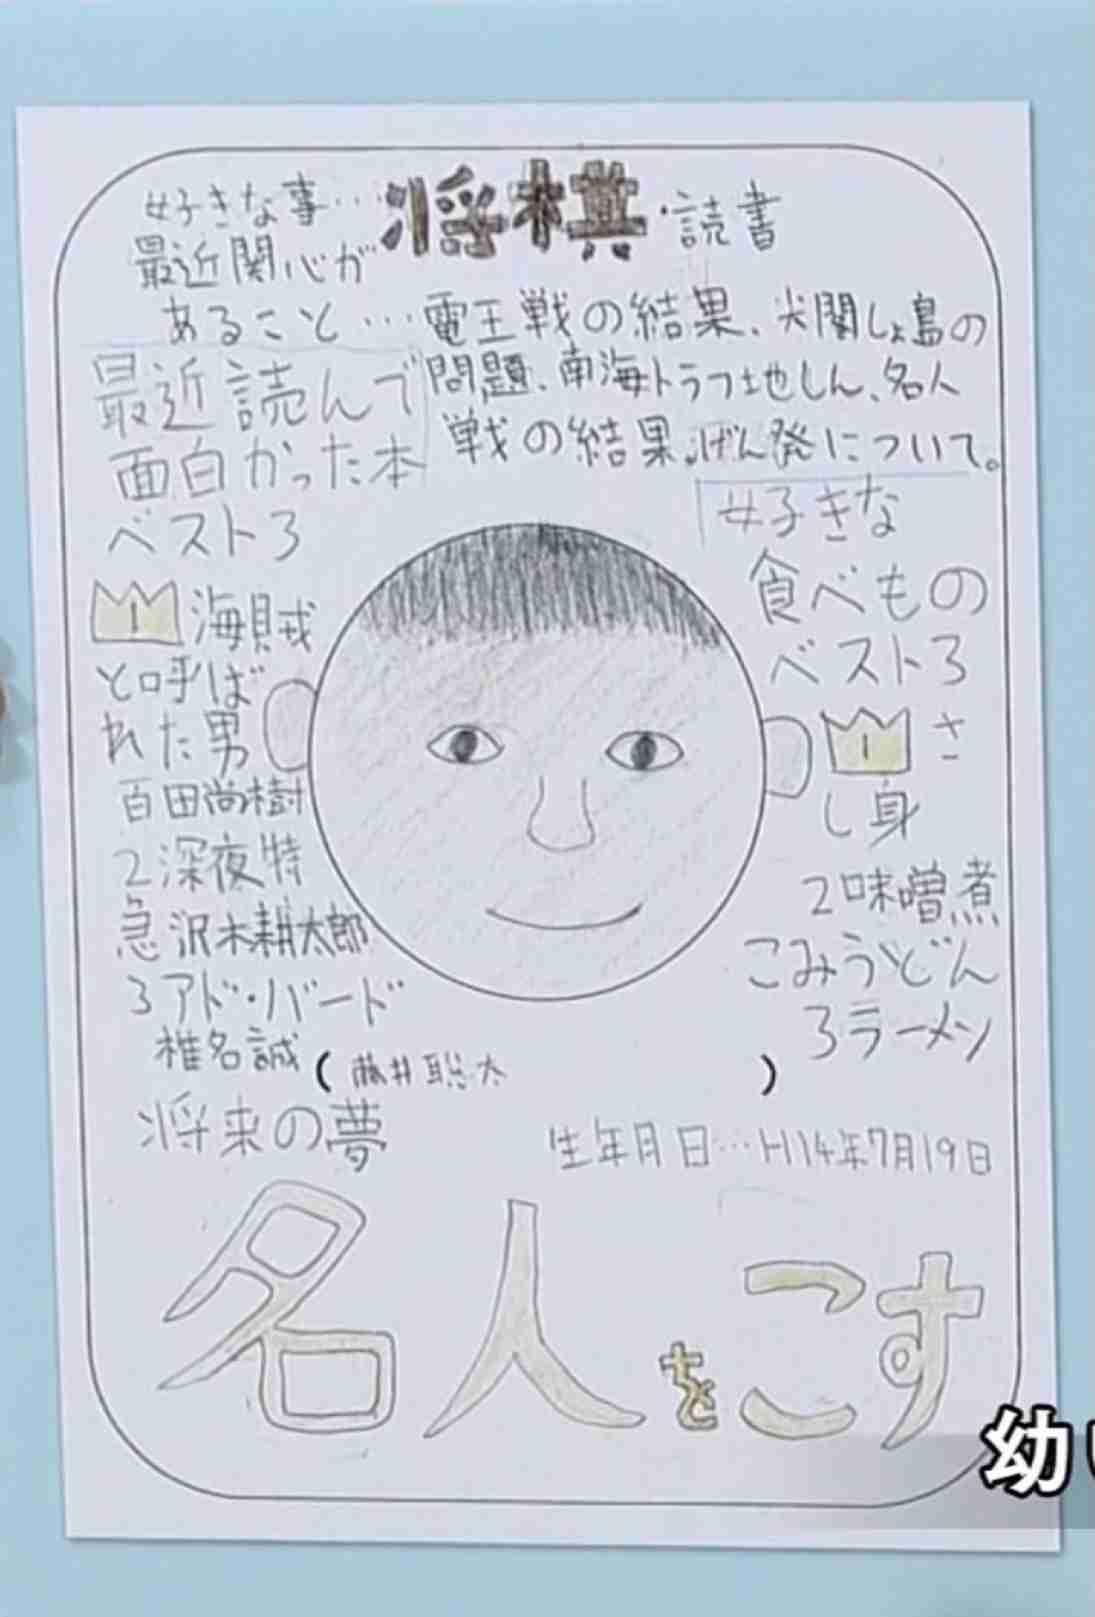 好きな事…将棋・読書
最近関心が
あること…電王戦の結果、尖閣しょ島の
問題、南海トラフ地しん、名人
戦の結果、げん発について。
最近読んで
面白かった本
ベスト3
1 海賊
と呼ば
れた男
百田尚樹
2深夜特
急 沢木耕太郎
3アド・バード
椎名誠
好きな
食べもの
ベスト3
1 さ
し身
2味噌煮
こみうどん
3ラーメン
(藤井聡太)
生年月日…H14年7月19日
将来の夢
名人をこす
幼